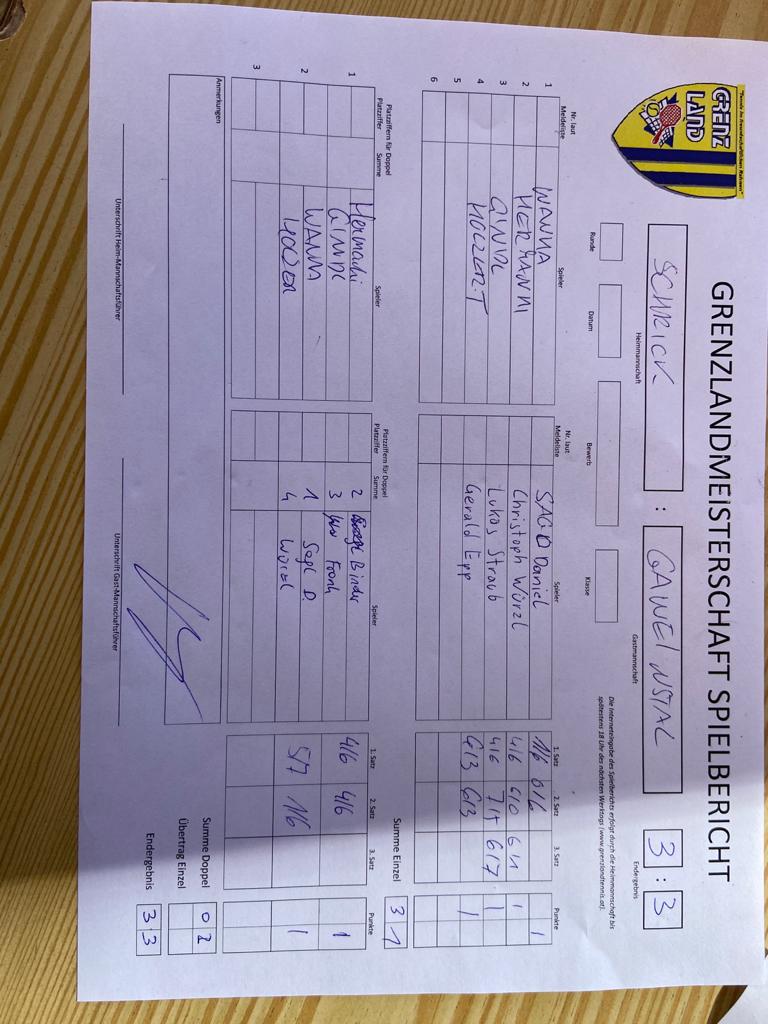 "Tennis im freundschaftlichen Rahmen"
GRENZ
LAND
GRENZLANDMEISTERSCHAFT SPIELBERICHT
SCHRICK : GAWEINSTAL 3 : 3
Heimmannschaft Gastmannschaft Endergebnis
Runde Datum Bewerb Klasse
Die Interneteingabe des Spielberichts erfolgt durch die Heimmannschaft bis
spätestens 18 Uhr des nächsten Werktags (www.grenzlandtennis.at).
Nr. laut Meldeliste Spieler Nr. laut Meldeliste Spieler 1. Satz 2. Satz 3. Satz Punkte
1 WANNA Daniel 1/6 0/6 1
2 HERMANN Christoph Würzl 4/6 6/0 6/1 1
3 GINDL Lukas Straub 4/6 7/5 6/7 1
4 HOLZER.T Gerald Epp 6/3 6/3 1
5
6
Summe Einzel 3 1
Platzziffern für Doppel
Platzziffer Summe Spieler
Platzziffern für Doppel
Platzziffer Summe Spieler 1. Satz 2. Satz 3. Satz Punkte
1 2 Binder 4/6 4/6 1
GINDL 3 Frank
2 WANNA 1 Sagl D. 5/7 1/6 1
4 Würzl
3
Anmerkungen
Summe Doppel 0 2
Übertrag Einzel
Endergebnis 3 3
Unterschrift Heim-Mannschaftsführer Unterschrift Gast-Mannschaftsführer